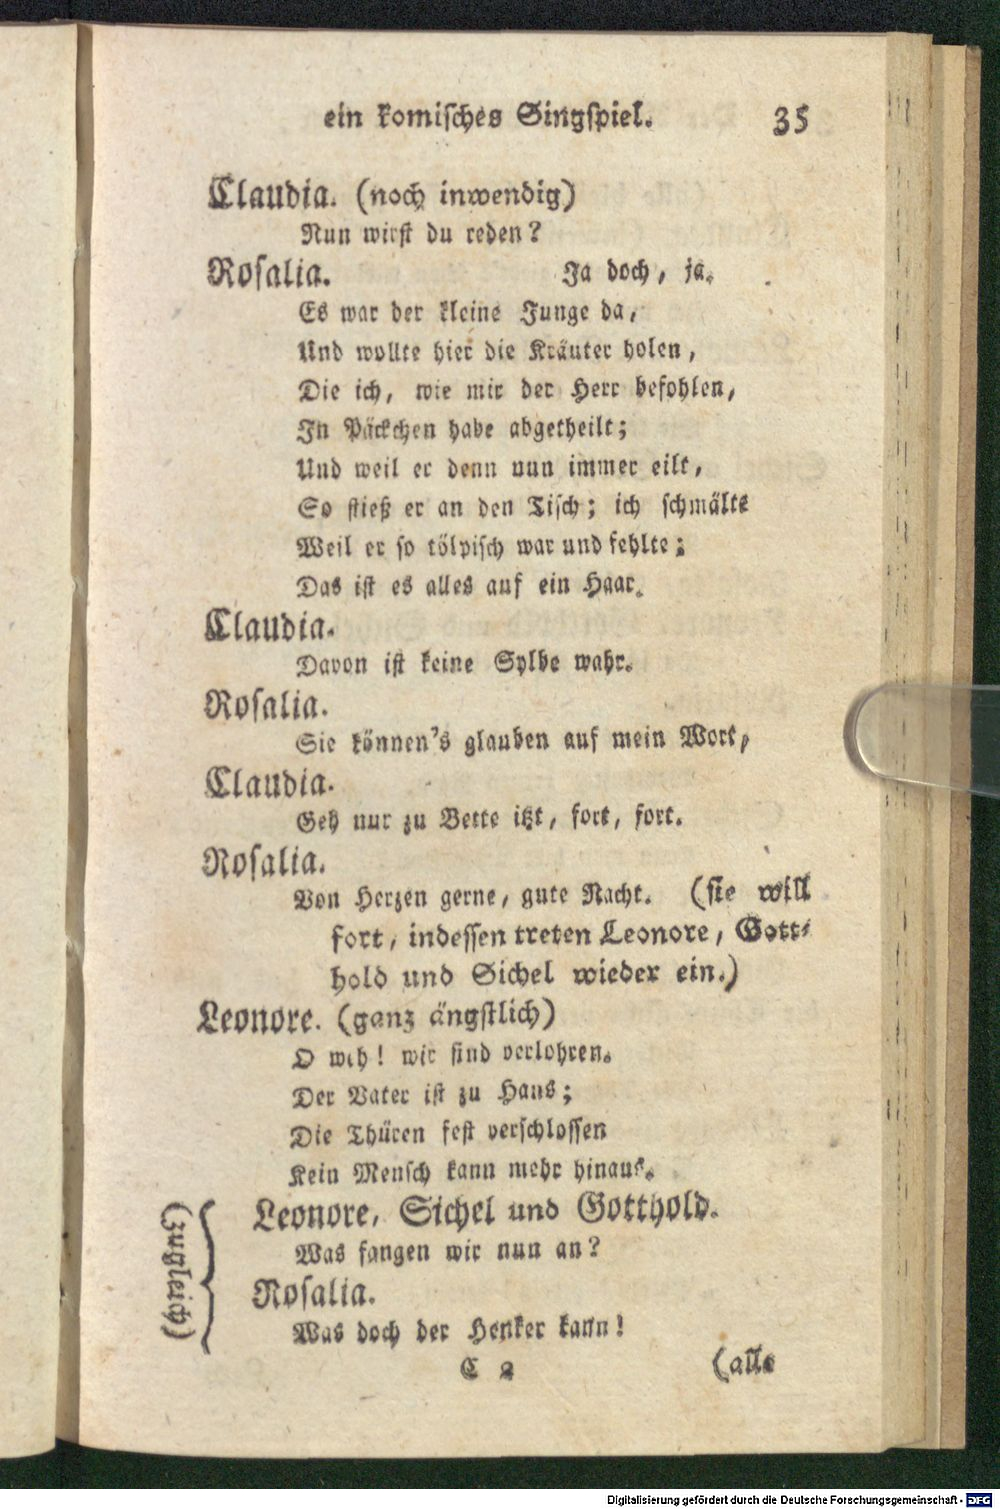 ein komisches Singspiel. 35
Claudia. (noch inwendig)
Nun wirst du reden?
Rosalia. Ja doch, ja.
Es war der kleine Junge da,
Und wollte hier die Kräuter holen,
Die ich, wie mir der Herr befohlen,
In Päckchen habe abgetheilt;
Und weil er denn nun immer eilt,
So stieß er an den Tisch; ich schmälte
Weil er so tölpisch war und fehlte;
Das ist es alles auf ein Haar.
Claudia.
Davon ist keine Sylbe wahr.
Rosalia.
Sie können's glauben auf mein Wort,
Claudia.
Geh nur zu Bette itzt, fort, fort.
Rosalia.
Von Herzen gerne, gute Nacht. (sie will
fort, indessen treten Leonore, Gott-
hold und Sichel wieder ein.)
Leonore. (ganz ängstlich)
O weh! wir sind verlohren.
Der Vater ist zu Haus;
Die Thüren fest verschlossen
Kein Mensch kann mehr hinaus.
(zugleich)
Leonore, Sichel und Gotthold.
Was fangen wir nun an?
Rosalia.
Was doch der Henker kann!
C 2 (alle
Digitalisierung gefördert durch die Deutsche Forschungsgemeinschaft - DFG